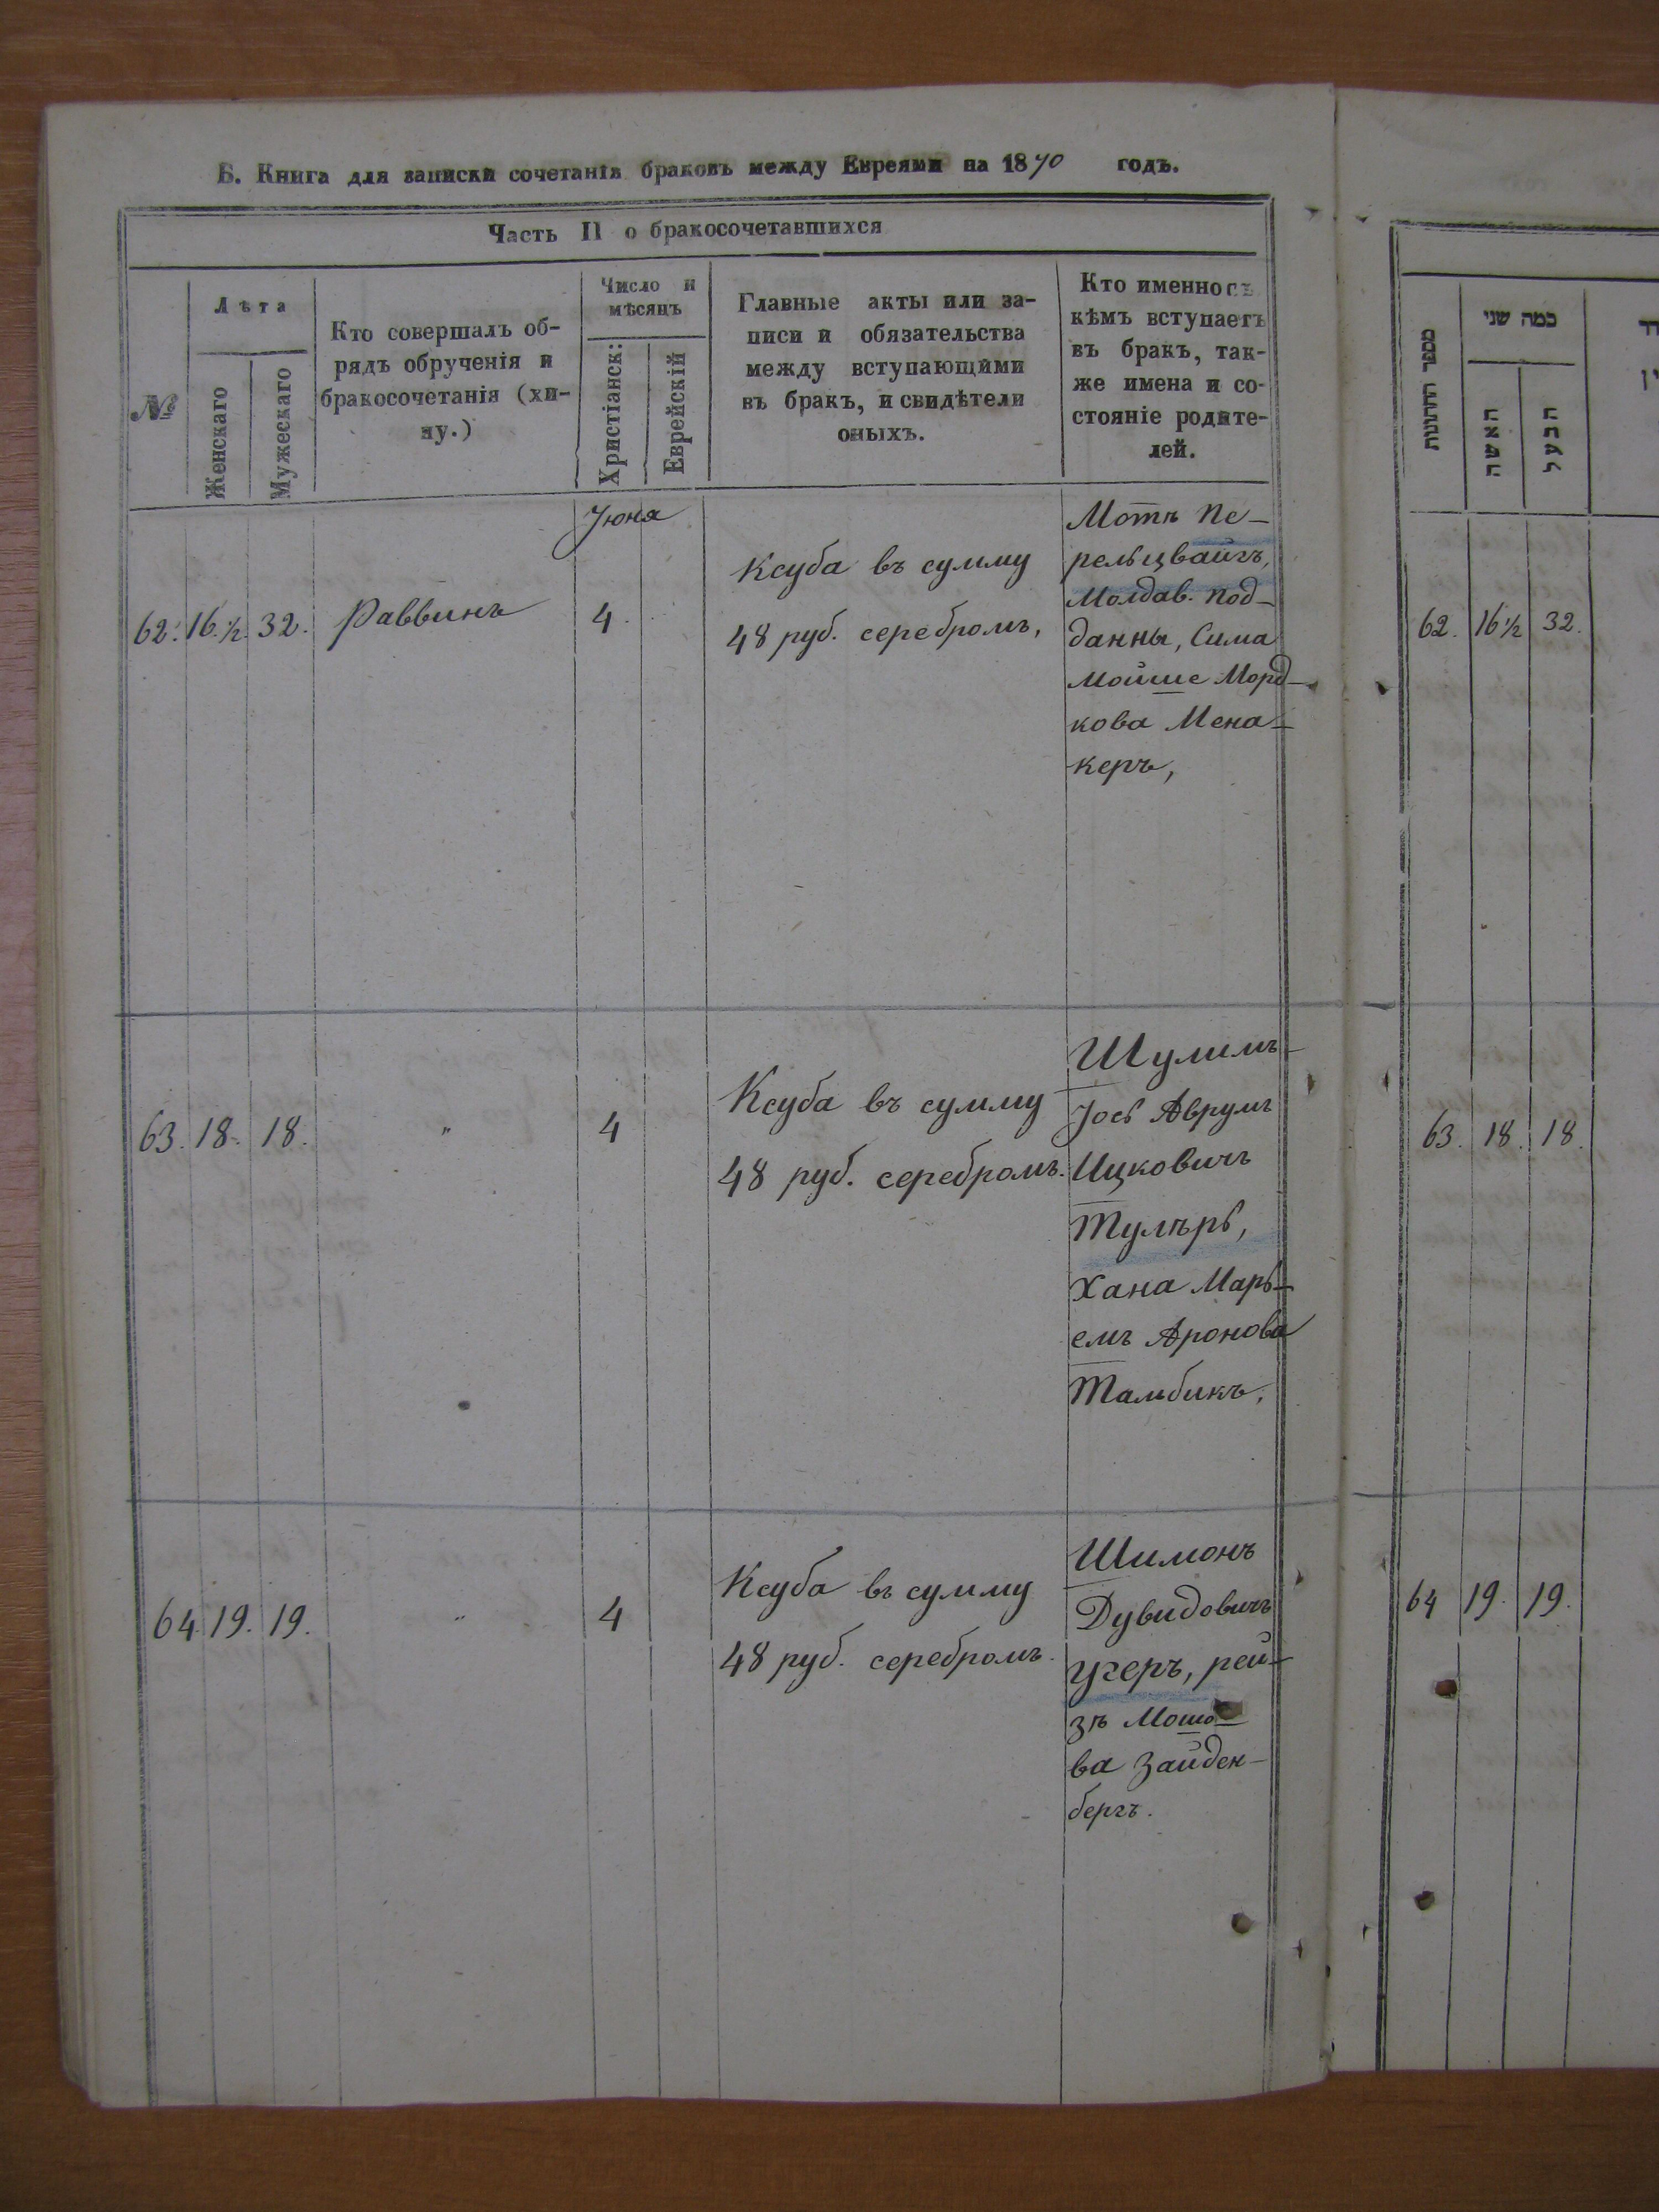 Б. Книга для записки сочетанія браковъ между Евреями на 1870 годъ.
Часть II о бракосочетавшихся
№
Лѣта
Женскаго
Мужескаго
Кто совершалъ об-
рядъ обрученія и
бракосочетанія (хи-
пу.)
Число и
мѣсяцъ
Христіанск:
Еврейскій
Главные акты или за-
писи и обязательства
между вступающими
въ бракъ, и свидѣтели
оныхъ.
Кто именно съ
кѣмъ вступаетъ
въ бракъ, так-
же имена и со-
стояніе родите-
лей.
Іюня
62. 16.½. 32. Раввинъ 4.
Ксуба въ сумму
48 руб. серебромъ,
Мотъ Пе-
рельцвайгъ,
Молдав. под-
данны, Сима
Мойше Морд-
кова Мена-
керъ,
63. 18. 18. " 4
Ксуба въ сумму
48 руб. серебромъ.
Шулимъ-
Іось Аврумъ
Ицковичъ
Тулъръ,
Хана Марь-
емъ Аронова
Тамбикъ,
64. 19. 19. " 4
Ксуба въ сумму
48 руб. серебромъ.
Шимонъ
Дувидовичъ
Угеръ, рей-
зъ Мошо-
ва Зайден-
бергъ.
כמה שני
האשה
הבעל
62. 16½ 32.
63. 18. 18.
64 19. 19.